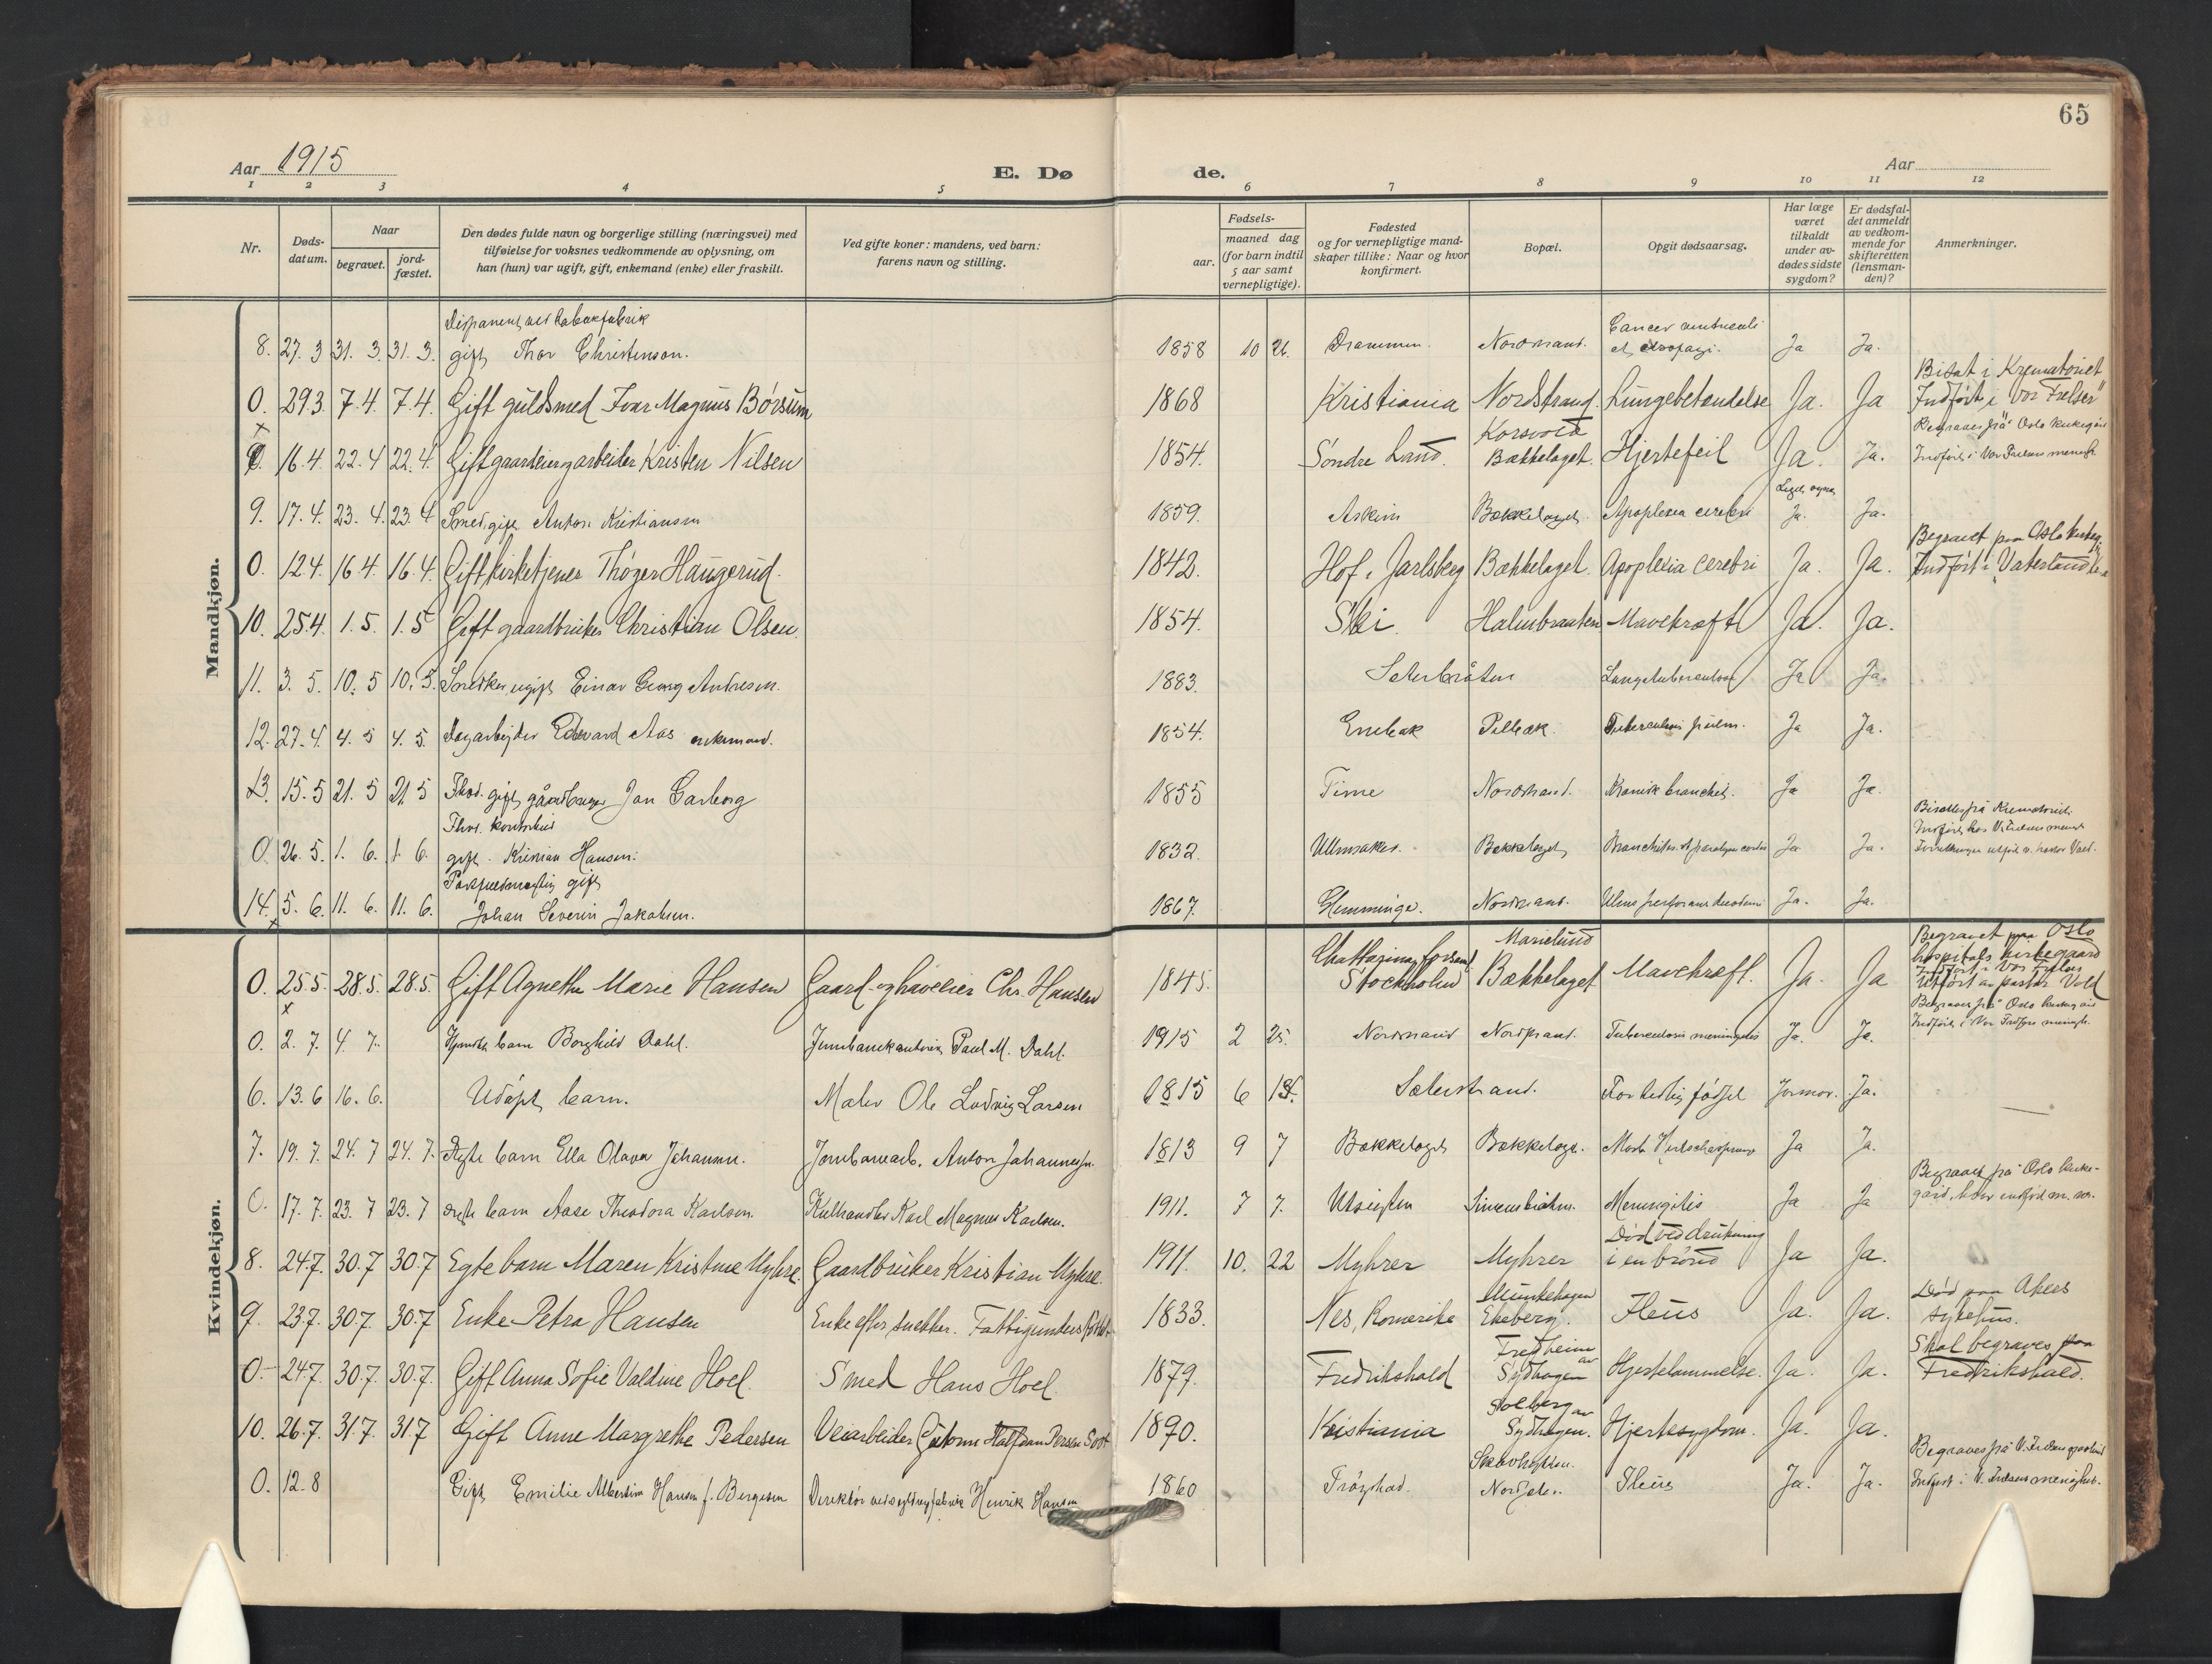 65
Aar 1915
E. Dø
de.
Aar
1 2 3 4 5 6 7 8 9 10 11 12
Nr.
Døds-
datum.
Naar
begravet.
jord-
fæstet.
Den dødes fulde navn og borgerlige stilling (næringsvei) med
tilføielse for voksnes vedkommende av oplysning, om
han (hun) var ugift, gift, enkemand (enke) eller fraskilt.
Ved gifte koner: mandens, ved barn:
farens navn og stilling.
Fødsels-
aar.
maaned dag
(for barn indtil
5 aar samt
vernepligtige).
Fødested
og for vernepligtige mand-
skaper tillike: Naar og hvor
konfirmert.
Bopæl.
Opgit dødsaarsag.
Har læge
været
tilkaldt
under av-
dødes sidste
sygdom?
Er dødsfal-
det anmeldt
av vedkom-
mende for
skifteretten
(lensman-
den)?
Anmerkninger.
Mandkjøn.
8. 27. 3 31. 3. 31. 3. gift Thor Christensen. 1858 10 26. Drammen. Nordstrand. Cancer Ja Ja.
Bisat i Krematoriet
0. 29.3. 7.4. 7.4. Gift guldsmed Ivar Magnus Børsum 1868 Kristiania Nordstrand. Lungebetændelse Ja. Ja Indført i "Vor Frelser"
Korsvold
16.4. 22.4 22.4. Gift gaardeier og arbeider Kristen Nilsen 1854. Søndre Land. Bækkelaget. Hjertefeil Ja. Ja. Indført i Vor Frelsers menigh.
9. 17.4. 23.4. 23.4 Smed, gift Anton Kristiansen 1859. Askim Bækkelaget. Apoplexia cerebri Ja. Ja.
Begravet paa Oslo
0. 12.4. 16.4. 16.4. Gift kirketjener Thøger Haugerud. 1842. Hof i Jarlsberg Bækkelaget. Apoplexia cerebri Ja. Ja. Indført i Vaterland
10. 25.4. 1.5. 1.5 Gift gaardbruker Christian Olsen. 1854. Ski. Holmbraaten Mavekræft Ja. Ja.
11. 3. 5. 10. 5 10. 5. Snedker, ugift Einar Georg Andresen. 1883. Seterbråten Lungetuberculose Ja Ja.
12. 27.4. 4. 5 4. 5. Dagarbeider Edvard Aas enkemand. 1854. Enebak Pilbæk. Tuberculosis pulm. Ja Ja.
13. 15. 5 21. 5 21. 5 Fhv. gift gårdbruger Jon Garborg 1855 Time Nordstrand. Kronisk bronchit. Ja Ja.
Fhv.
0. 26. 5. 1. 6. 1. 6. gift. Kristian Hansen. 1832. Ullensaker. Bækkelaget Ja Ja.
gift
14. 5. 6. 11. 6. 11. 6. Johan Severin Jakobsen. 1867. Glemminge. Nordstrand. Ja. Ja.
Kvindekjøn.
Marielund
Begravet paa Oslo
hospitals kirkegaard
Indført i Vor Frelser
0. 25.5. 28.5. 28.5. Gift Agnethe Marie Hansen Gaard- og haveeier Chr. Hansen 1845. Stockholm Bækkelaget Mavekræft. Ja. Ja Utført av pastor Vold
0. 2. 7. 4. 7. barn Borghild Dahl. Paul M. Dahl. 1915 2 25. Nordstrand Nordstrand. Tuberculosis meningitis Ja. Ja.
6. 13. 6 16. 6. Udøpt barn. Maler Ole Ludvig Larsen 1815 6 13. Sæterstrand. For tidlig fødsel Jormor. Ja.
7. 19. 7. 24. 7 24. 7. Ægte barn Ella Olava Johansen. Jernbanearb. Anton Johannesen. 1813 9 7 Bækkelaget Bækkelaget. Ja Ja.
0. 17. 7. 23. 7 23. 7 ægte barn Aase Theodora Karlsen. Kulhandler Karl Magnus Karlsen. 1911. 7 7. Utsigten Meningitis Ja Ja
Begravet på Oslo kirke-
Død ved drukning
8. 24.7. 30.7 30.7 Egte barn Maren Kristine Myhre. Gaardbruker Kristian Myhre. 1911. 10. 22 Myhrer Myhrer i en brønd Ja Ja.
Munkehagen
Død paa Akers
9. 23.7. 30.7. 30.7 Enke Petra Hansen Enke efter snekker. Fattigunderstøttet. 1833. Nes, Romerike Ekeberg. Ileus Ja. Ja. sykehus.
Fredheim
av
Skal begraves paa
0. 24.7. 30.7. 30.7. Gift Anna Sofie Valdine Hoel. Smed Hans Hoel. 1879. Fredrikshald Sydhagen Hjertelammelse. Ja. Ja. Fredrikshald.
Solberg av
10. 26.7. 31.7. 31.7 Gift Anne Margrethe Pedersen Veiarbeider 1890. Kristiania Sydhagen. Hjertesygdom. Ja. Ja.
0. 12.8 Gift Emilie Albertine Hansen f. Bergesen Direktør Henrik Hansen 1860 Trøgstad. Ileus Ja. Ja. Indført i V. Frelsers menighet.